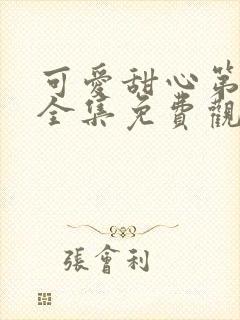 可愛甜心第
全集免費觀
張會利